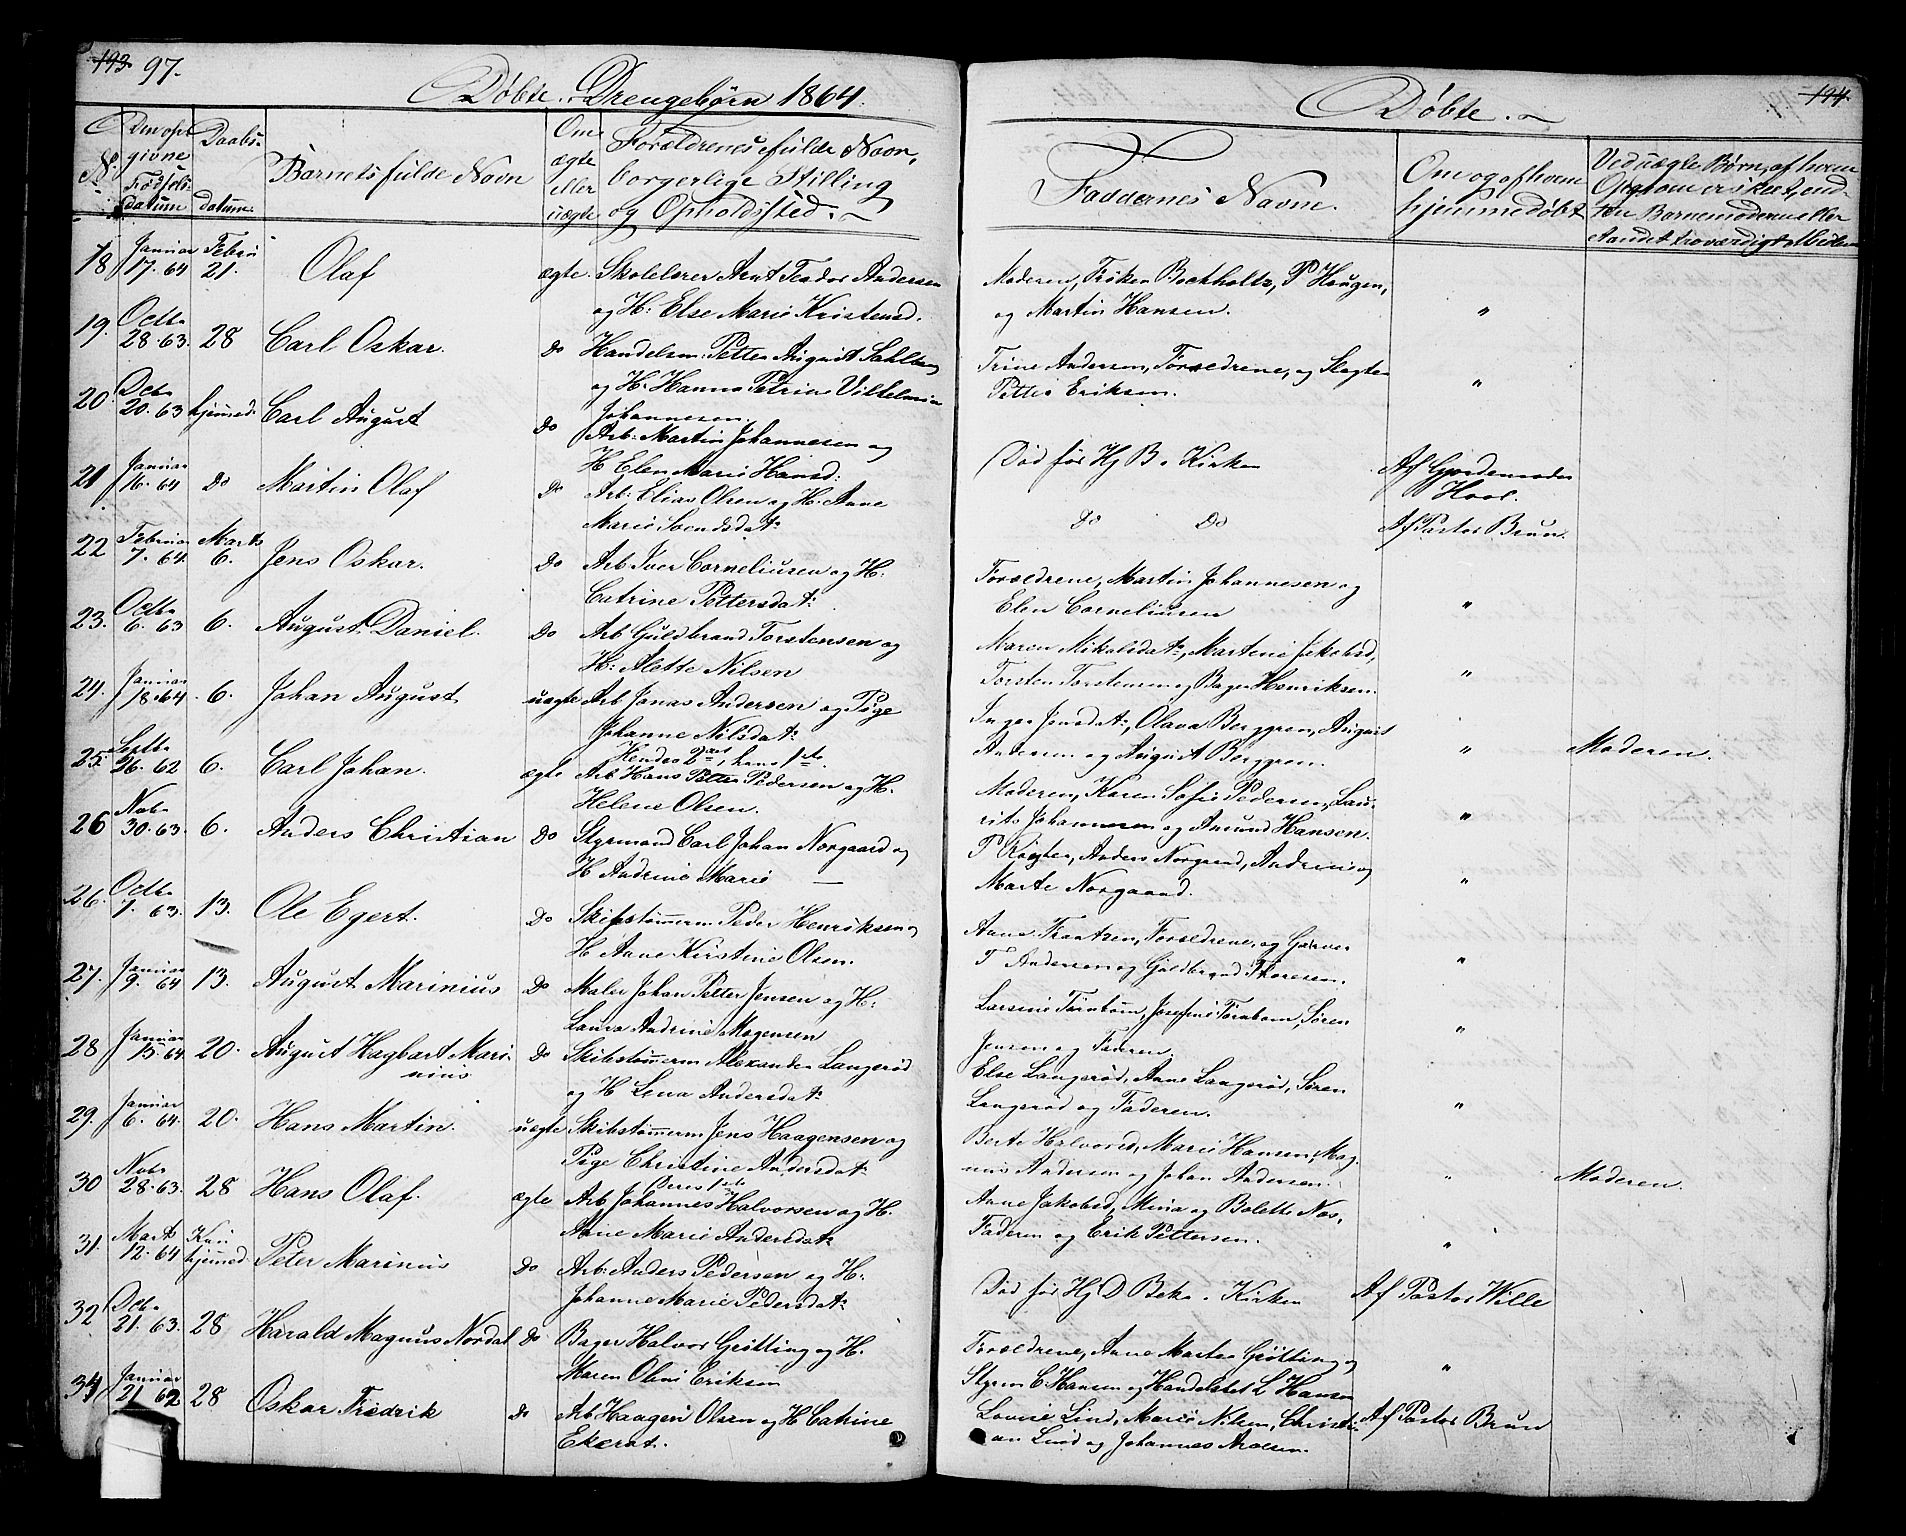 193. 97.
Døbte Drengebørn 1864.
N.
Den opgivne Fødselsdatum
Daabsdatum.
Barnets fulde Navn
Om ægte eller uægte
Forældrenes fulde Navn, borgerlige Stilling og Opholdssted.
18 Januar 17. 64 Febru 21. Olaf ægte. Skolelærer Arnt Teodor Andersen
og H: Else Marie Kristensd.
19. Octb 28. 63. 28 Carl Oskar. Do Handelsm: Petter August Sahlberg
og H: Hanna Petrine Vilhelmine
Johannesen.
20. Octb 20. 63 hjemmed. Carl August Do Arb: Martin Johannesen og
H Elen Marie Hansd:
21 Januar 16. 64 Do Martin Olaf Do Arb: Elias Olsen og H: Anne
Marie Svendsdat:
22 Februar 7. 64. Marts 6. Jens Oskar. Do Arb Iver Corneliusen og H:
Catrine Pettersdat:
23. Octb 6. 63 6. August Daniel. Do Arb Guldbrand Torstensen og
H: Alette Nilsen
24. Januar 18. 64. 6. Johan August uægte Arb Jonas Andersen og Pige
Johanne Nilsdat:
Hendes 2det, hans 1ste.
25 Septb 26. 62 6. Carl Johan. ægte Arb Hans Petter Pedersen og H:
Helene Olsen.
26 Novb 30. 63. 6. Anders Christian Do Styrmand Carl Johan Norgaard og
H Andrine Marie —
26. Octb 1. 63. 13. Ole Egert. Do Skibstømmerm Peder Henriksen og
H Anne Kirstine Olsen.
27. Januar 9. 64 13. August Marinius Do Maler Johan Petter Jensen og H:
Laura Andrine Mogensen
28 Januar 15. 64. 20. August Hagbart Mari-
nius Do Skibstømmerm Alexander Langerød
og H Lena Andersdat:
29. Januar 6. 64. 20. Hans Martin. uægte Skibstømmerm Jens Haagensen og
Pige Christine Andersdat:
Deres 1ste
30 Novb 28. 63. 28 Hans Olaf. ægte Arb Johannes Halvorsen og H:
Anne Marie Andersdat:
31. Marts 12. 64 Kun hjemmed. Peter Marinius Do Arb: Anders Pedersen og H:
Johanne Marie Pedersdat:
32 Octb 21. 63. 28 Harald Magnus Nordal Do Bager Halvor Grøtting og H:
Maren Oline Eriksen
34 Januar 21 62 28 Oskar Fredrik Do Arb Haagen Olsen og H Catrine
Ekerot.
194.
Døbte.
Faddernes Navne.
Om og af hvem hjemmedøbt
Ved uægte Børn, af hvem Opgaven er skeet, enten Barnemoderen eller
Moderen, Frøken Bochholtz, P Haugen,
og Martin Hansen. "
Trine Andersen, Forældrene, og Slagter
Petter Eriksen. "
Død før Hj B. i Kirken Af Gjordemoder
Do Do Af Pastor Brun.
Forældrene, Martin Johannesen og
Elen Corneliusen "
Maren Mikalsdat:, Martine Jakobsd,
Torsten Torstensen og Bager Henriksen. "
Inger Jensdat:, Olava Berggren, August
Andersen og August Berggren. " Moderen.
Moderen, Karen Sofie Pedersen, Lau-
rits Johannesen og Amund Hansen. "
Anders Norgaard, Andrine og
Marte Norgaard. "
Anne Frantzen, Forældrene, og Garver
T Andersen og Guldbrand Thoresen. "
Larsine Tørnbom, Josefine Tørnbom, Søren
Jensen og Faderen. "
Else Langerød, Anne Langerød, Søren
Langerød og Faderen. "
Berte Halvorsd, Marie Hansen, Mag-
nus Andersen og Johan Andersen. " Moderen.
Anne Jakobsd, Mina og Bolette Nos,
Faderen og Erik Pettersen. "
Død før Hj D Bek. i Kirken Af Pastor Wille
Forældrene, Anne Martea Grøtting og
Styrm C. Hansen og Handelsbet L Hansen "
Lovise Lind, Marie Nilsen, Christi-
an Lind og Johannes Af Pastor Brun